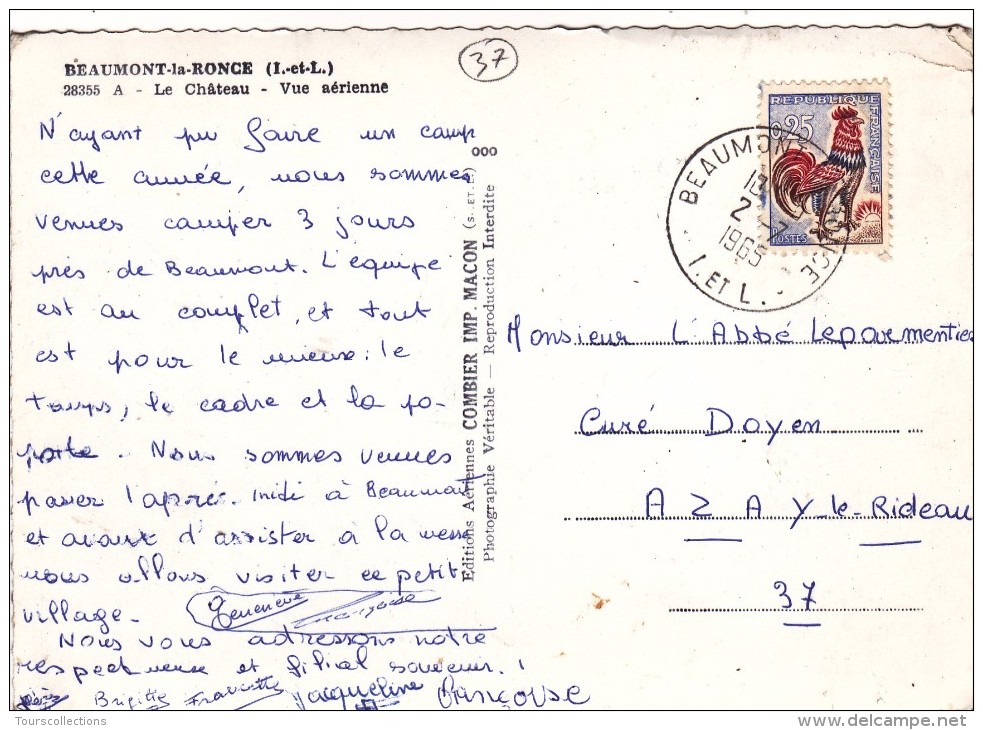 37
BEAUMONT-la-RONCE (I.-et-L.)
28355 A - Le Château - Vue aérienne
N'ayant pu faire un camp
cette année, nous sommes
venues camper 3 jours
près de Beaumont. L'équipe
est au complet, et tout
est pour le mieux : le
temps, le cadre et la po-
pote. Nous sommes venues
passer l'après-midi à Beaumont
et avant d'assister à la messe
nous allons visiter ce petit
village.
Geneviève Françoise
Nous vous adressons notre
respectueux et filial souvenir.
Brigitte Jacqueline Françoise
ooo
Editions Aériennes COMBIER IMP. MACON (S.-ET-L.)
Photographie Véritable — Reproduction Interdite
REPUBLIQUE FRANÇAISE
0,25
POSTES
BEAUMONT LA RONCE
18
2-7
1965
I. ET L.
Monsieur L'Abbé Leparmentier
Curé Doyen
AZAY-le-Rideau
37
Tourscollections
delcampe.net